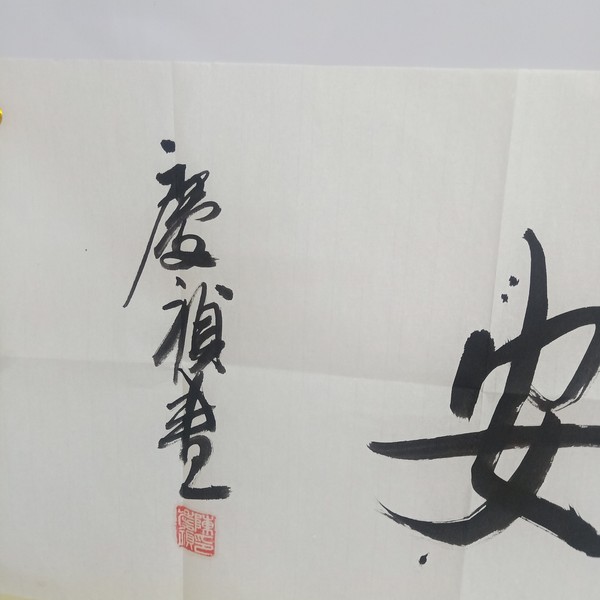 安
慶禎書